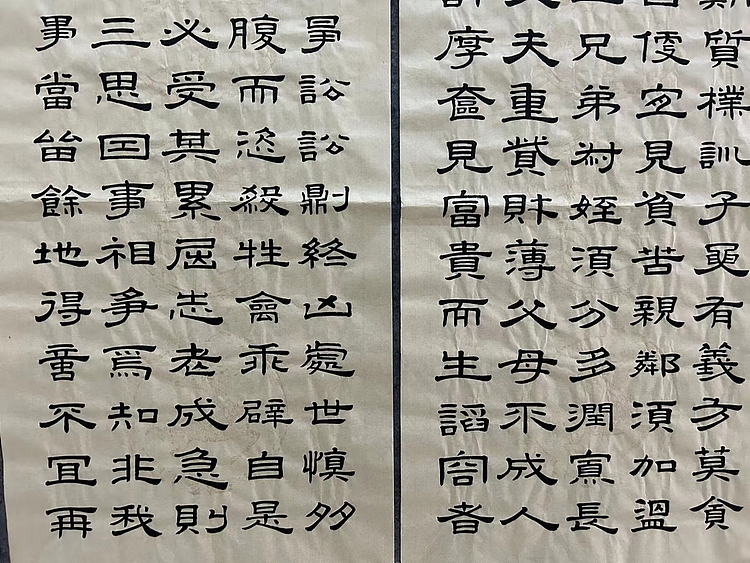 質樸訓子要有義方莫貪
便宜見貧苦親鄰須加溫
兄弟叔姪須分多潤寡長
丈夫重貲財薄父母不成人
計厚奩見富貴而生諂容者
爭訟訟則終凶處世慎多
腹而恣殺牲禽乖僻自是
必受其累屈志老成急則
三思因事相爭焉知非我
事當留餘地得意不宜再